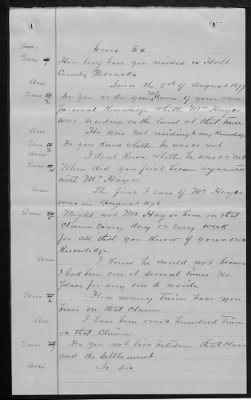 Cross Ex
Ques #1 How long have you resided in Holt
County Nebraska
Ans Since the 5th of August 1879
Ques #2 Do you or do you not know of your own
personal Knowledge whether Mr Hayes
was residing on the land at that time
Ans He was not residing to my Knowledge
Ques #3 Do you Know whether he was or not
Ans I dont Know whether he was or not
Ques #4 When did you first become acquainted
with Mr Hayes
Ans The first I saw of Mr Hayes
was in August 1880
Ques #5 Might not Mr Hayes been on that
Claim every day or every week
for all that you Know of your own
Knowledge
Ans I Know he would not because
I had been on it several times. No
place for any one to reside
Ques #6 How many times have you
been on that Claim
Ans I have been over a hundred times
on that Claim
Ques #7 Do you not live between that Claim
and the Settlement
Ans No sir